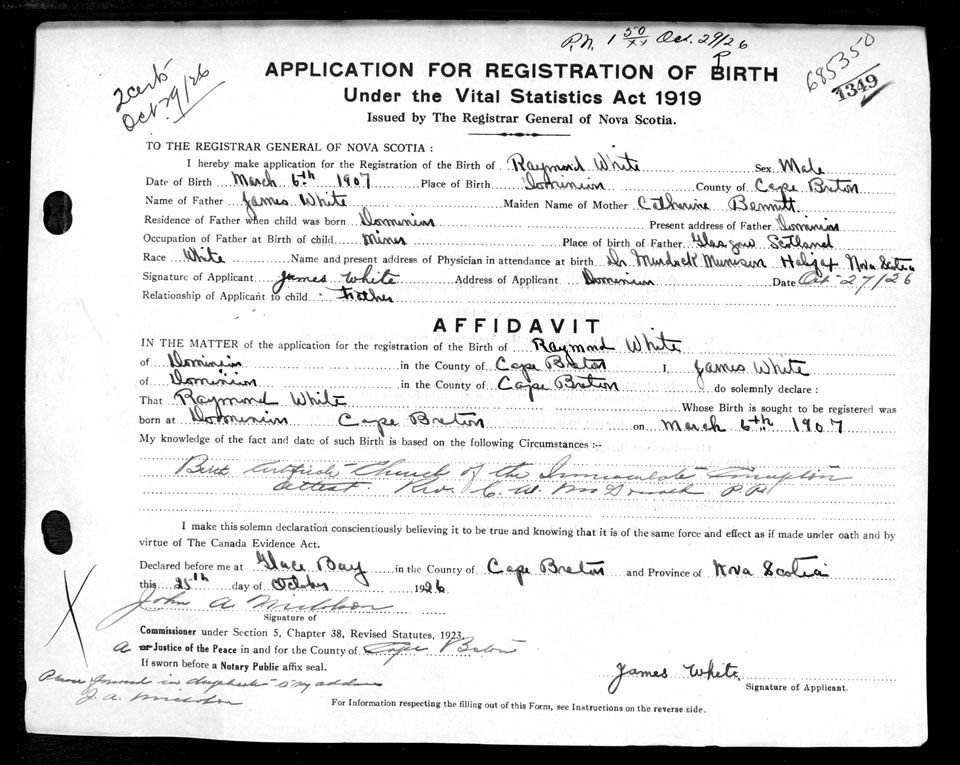 P.N. 1 50/xx Oct. 29/26
2 certs
Oct 29/26
685350
1349
APPLICATION FOR REGISTRATION OF BIRTH
Under the Vital Statistics Act 1919
Issued by The Registrar General of Nova Scotia.
TO THE REGISTRAR GENERAL OF NOVA SCOTIA :
I hereby make application for the Registration of the Birth of Raymond White Sex Male
Date of Birth March 6th 1907 Place of Birth Dominion County of Cape Breton
Name of Father James White Maiden Name of Mother Catherine Bennett
Residence of Father when child was born Dominion Present address of Father Dominion
Occupation of Father at Birth of child Miner Place of birth of Father Glasgow Scotland
Race White Name and present address of Physician in attendance at birth Dr. Murdock Halifax Nova Scotia
Signature of Applicant James White Address of Applicant Dominion Date Oct 27/26
Relationship of Applicant to child Father
AFFIDAVIT
IN THE MATTER of the application for the registration of the Birth of Raymond White
of Dominion in the County of Cape Breton I, James White
of Dominion in the County of Cape Breton do solemnly declare :
That Raymond White Whose Birth is sought to be registered was
born at Dominion Cape Breton on March 6th 1907
My knowledge of the fact and date of such Birth is based on the following Circumstances :--
Birth Certificate Church of the Immaculate Conception
attest. Rev. C. W. McDonald P.P.
I make this solemn declaration conscientiously believing it to be true and knowing that it is of the same force and effect as if made under oath and by
virtue of The Canada Evidence Act.
Declared before me at Glace Bay in the County of Cape Breton and Province of Nova Scotia
this 25th day of October 1926
John A.
Signature of
Commissioner under Section 5, Chapter 38, Revised Statutes, 1923
a or Justice of the Peace in and for the County of Cape Breton
If sworn before a Notary Public affix seal.
James White
Signature of Applicant.
Please forward in duplicate to my address
J. A.
For Information respecting the filling out of this Form, see Instructions on the reverse side.